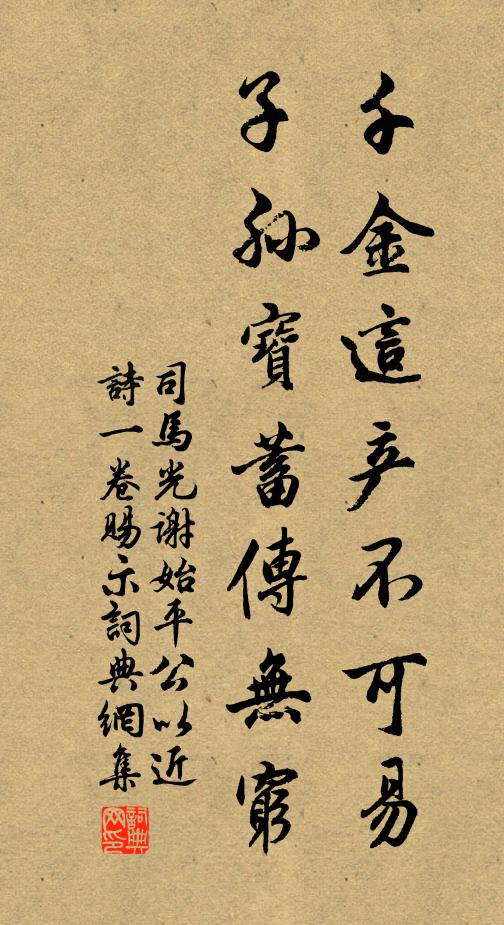 千金這产不可易
子孫寶蓄傳無窮
司馬光謝始平公以近
詩一卷賜示詞典網集
詞典网印